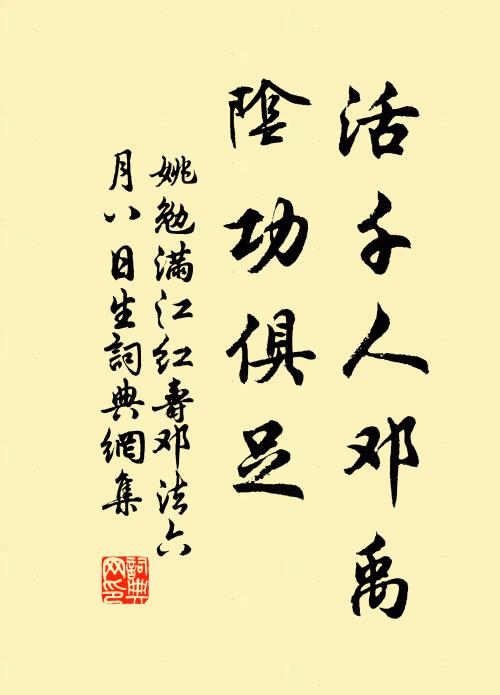 活千人邓禹
陰功俱足
姚勉满江红壽邓法六
月八日生詞典網集
詞典
网印